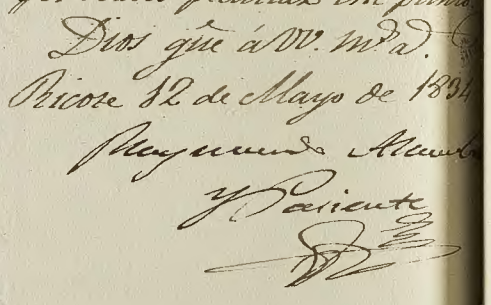 Dios gũe á VV. mˢ aˢ.
Ricose 12 de Mayo de 1834
Raymundo
y Pariente